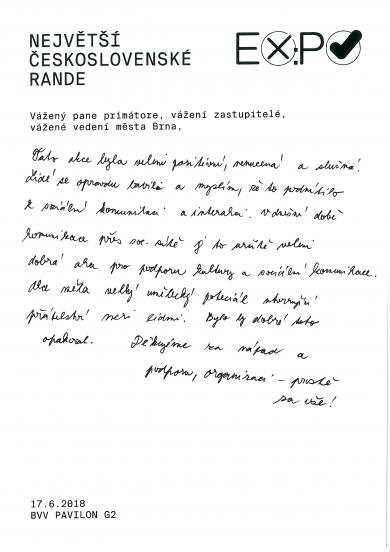 NEJVĚTŠÍ
ČESKOSLOVENSKÉ
RANDE
EX:PO
Vážený pane primátore, vážení zastupitelé,
vážené vedení města Brna,
Tato akce byla velmi pozitivní, nenucená a slušná.
Lidé se opravdu bavili a myslím, že to podnítilo
k sociální komunikaci a interakci. V dnešní době
komunikace přes soc. sítě je to určitě velmi
dobrá akce pro podporu kultury a sociální komunikace.
Akce měla velký umělecký potenciál
přátelství mezi lidmi. Bylo by dobré toto
opakovat. Děkujeme za nápad a
podporu, organizaci – prostě
za vše!
17.6.2018
BVV PAVILON G2